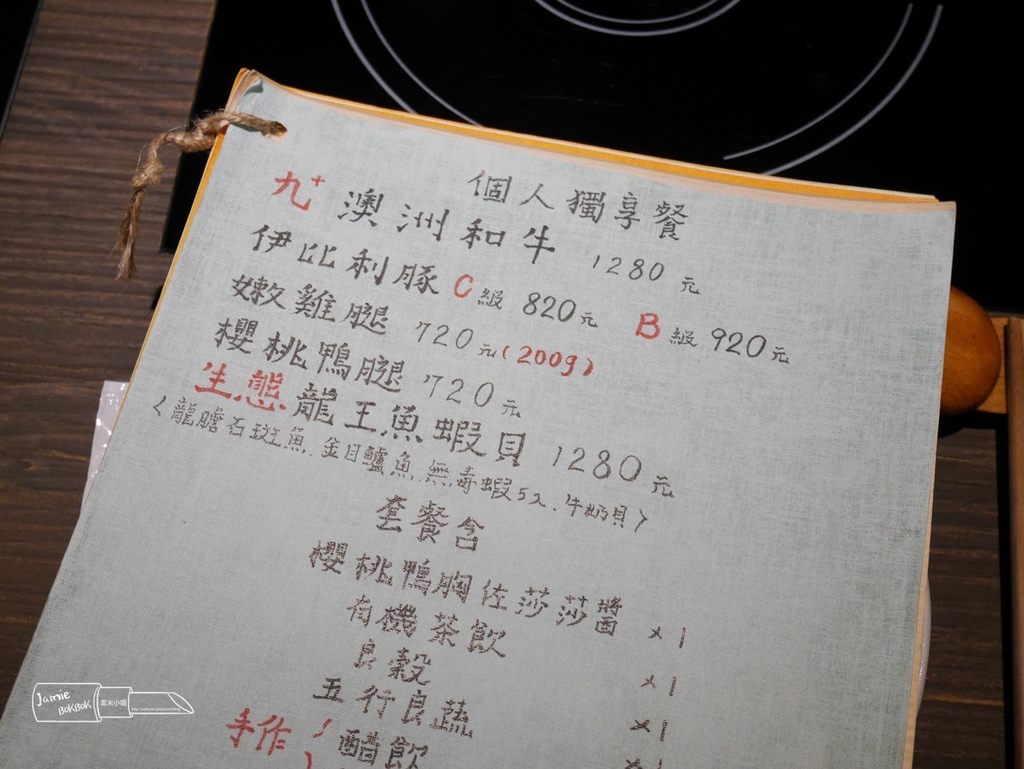 個人獨享餐
九⁺ 澳洲和牛 1280元
伊比利豚 C級 820元 B級 920元
嫩雞腿 720元(200g)
櫻桃鴨腿 720元
生態龍王魚蝦貝 1280元
〈龍膽石斑魚.金目鱸魚.無毒蝦5入.牛奶貝〉
套餐含
櫻桃鴨胸佐莎莎醬 x1
有機茶飲 x1
良穀 x1
五行良蔬
手作 醋飲
Jamie
BOKBOK
潔米小姐